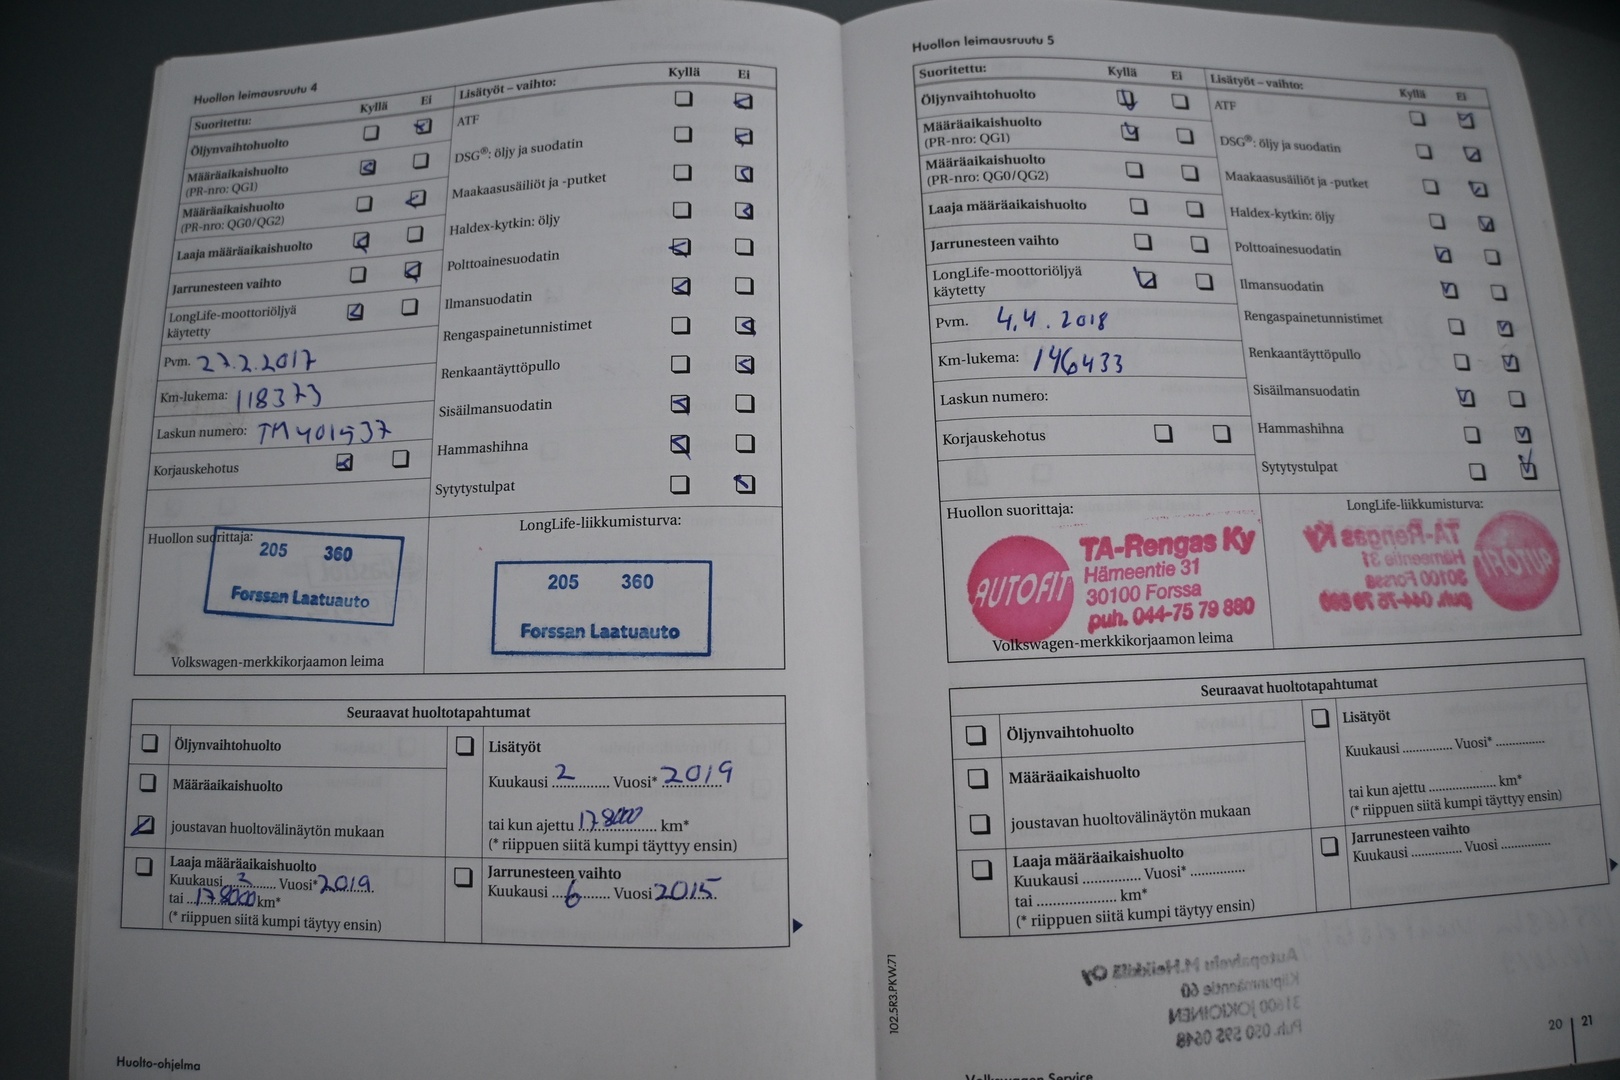 Huollon leimausruutu 4
Suoritettu: Kyllä Ei
Öljynvaihtohuolto
Määräaikaishuolto
(PR-nro: QG1)
Määräaikaishuolto
(PR-nro: QG0/QG2)
Laaja määräaikaishuolto
Jarrunesteen vaihto
LongLife-moottoriöljyä
käytetty
Pvm. 27.2.2017
Km-lukema: 118373
Laskun numero: TM401937
Korjauskehotus
Lisätyöt – vaihto: Kyllä Ei
ATF
DSG®: öljy ja suodatin
Maakaasusäiliöt ja -putket
Haldex-kytkin: öljy
Polttoainesuodatin
Ilmansuodatin
Rengaspainetunnistimet
Renkaantäyttöpullo
Sisäilmansuodatin
Hammashihna
Sytytystulpat
Huollon suorittaja:
205 360
Forssan Laatuauto
Volkswagen-merkkikorjaamon leima
LongLife-liikkumisturva:
205 360
Forssan Laatuauto
Seuraavat huoltotapahtumat
Öljynvaihtohuolto
Määräaikaishuolto
joustavan huoltovälinäytön mukaan
Laaja määräaikaishuolto
Kuukausi 3 Vuosi* 2019
tai 178000 km*
(* riippuen siitä kumpi täytyy ensin)
Lisätyöt
Kuukausi 2 Vuosi* 2019
tai kun ajettu 178000 km*
(* riippuen siitä kumpi täyttyy ensin)
Jarrunesteen vaihto
Kuukausi 6 Vuosi 2015
Huolto-ohjelma
Huollon leimausruutu 5
Suoritettu: Kyllä Ei
Öljynvaihtohuolto
Määräaikaishuolto
(PR-nro: QG1)
Määräaikaishuolto
(PR-nro: QG0/QG2)
Laaja määräaikaishuolto
Jarrunesteen vaihto
LongLife-moottoriöljyä
käytetty
Pvm. 4.4.2018
Km-lukema: 146433
Laskun numero:
Korjauskehotus
Lisätyöt – vaihto: Kyllä Ei
ATF
DSG®: öljy ja suodatin
Maakaasusäiliöt ja -putket
Haldex-kytkin: öljy
Polttoainesuodatin
Ilmansuodatin
Rengaspainetunnistimet
Renkaantäyttöpullo
Sisäilmansuodatin
Hammashihna
Sytytystulpat
Huollon suorittaja:
AUTOFIT
TA-Rengas Ky
Hämeentie 31
30100 Forssa
puh. 044-75 79 880
Volkswagen-merkkikorjaamon leima
LongLife-liikkumisturva:
TA-Rengas Ky
Hämeentie 31
30100 Forssa
puh. 044-75 79 880
AUTOFIT
Seuraavat huoltotapahtumat
Öljynvaihtohuolto
Määräaikaishuolto
joustavan huoltovälinäytön mukaan
Laaja määräaikaishuolto
Kuukausi .............. Vuosi* ..............
tai .................... km*
(* riippuen siitä kumpi täytyy ensin)
Lisätyöt
Kuukausi .............. Vuosi* ..............
tai kun ajettu .................. km*
(* riippuen siitä kumpi täyttyy ensin)
Jarrunesteen vaihto
Kuukausi .............. Vuosi ..............
102.5R3.PKW.71
Autopalvelu M.Heikkilä Oy
60
31600 JOKIOINEN
Puh. 050 595 0648
20 21
Volkswagen Service